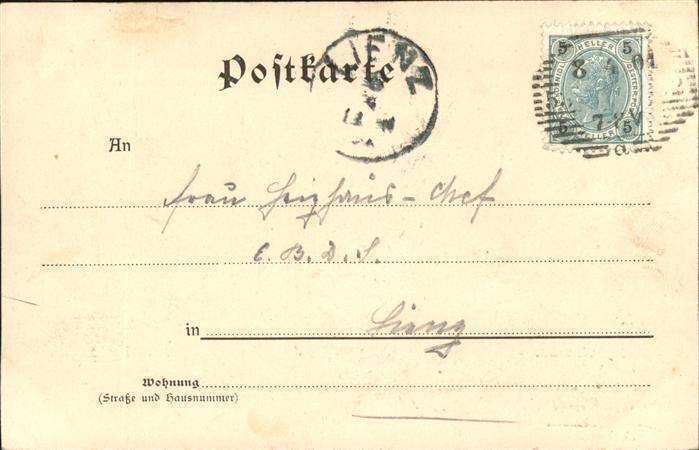 Postkarte
LIENZ
5 HELLER 5
8 4 01
7
5
a
An
Frau Heizhaus-Chef
C. B. D. S.
in Lienz
Wohnung
(Straße und Hausnummer)